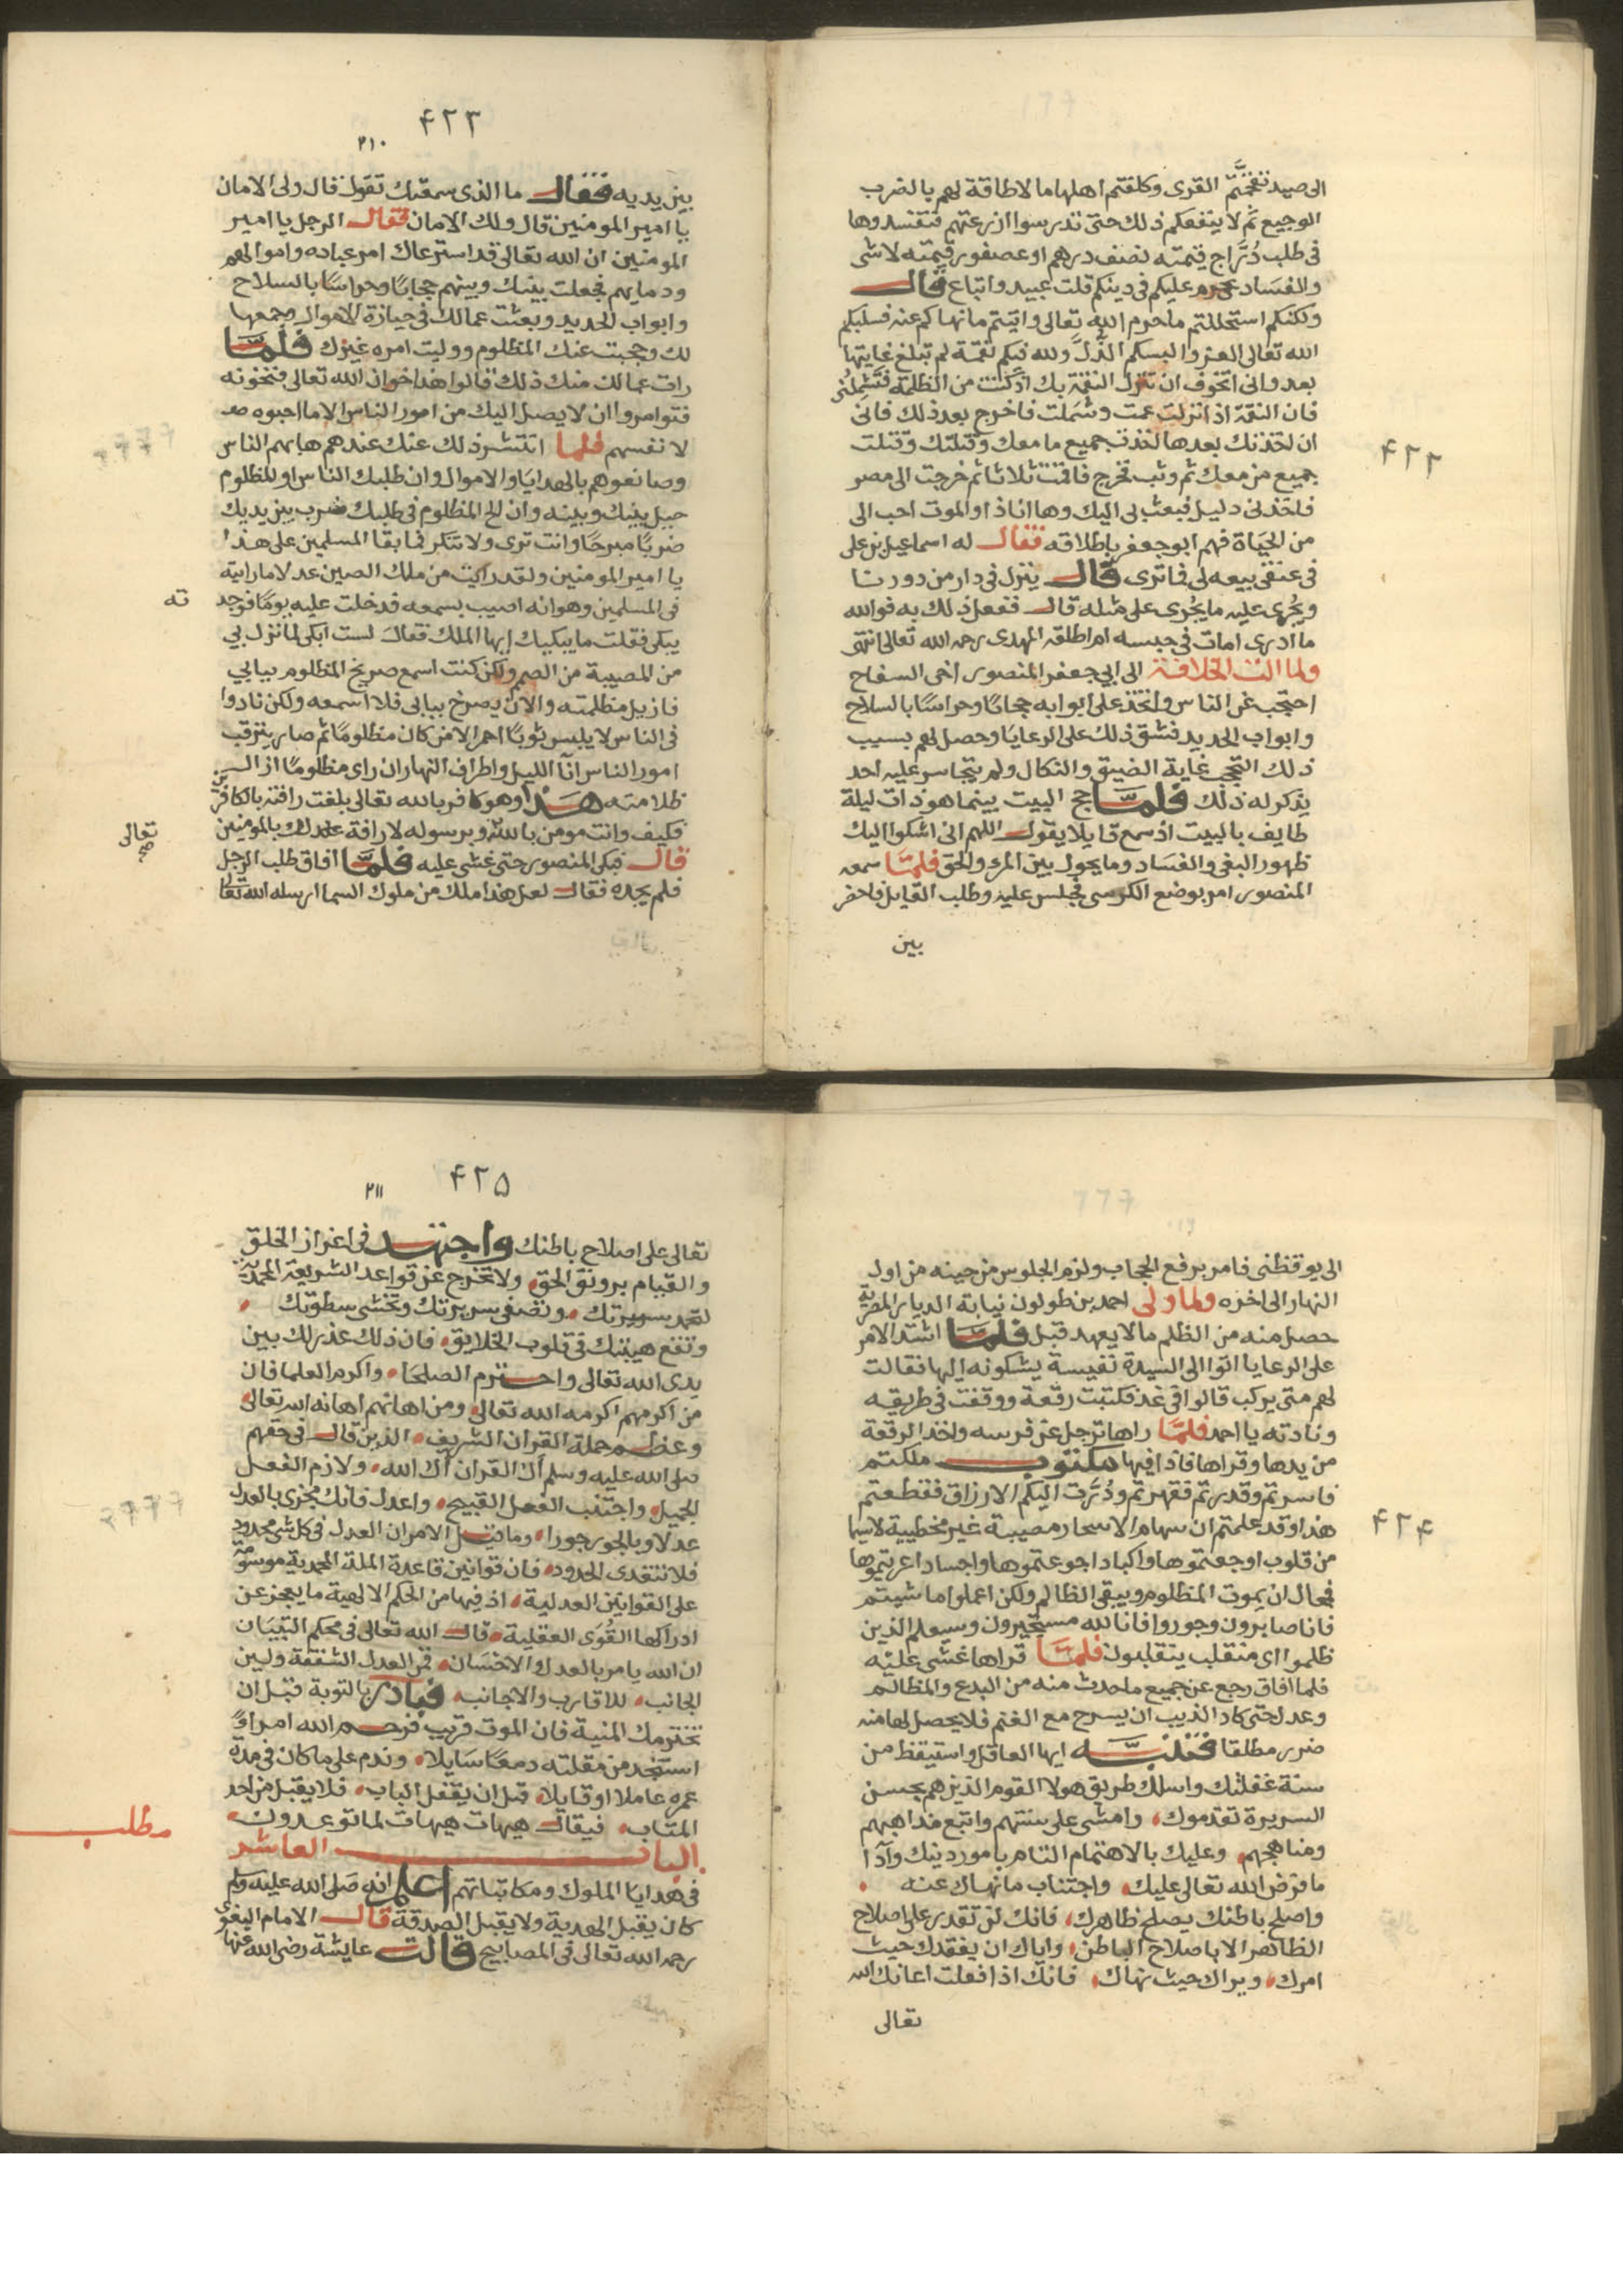 الى صيد تقحمتم القرى وكلفتم اهلها ما لا طاقة لهم بالضرب
الوجيع ثم لا ينفعكم ذلك حتى تدرسوا ازرعتهم فتفسدوها
فى طلب دُرَّاج قيمته نصف درهم او عصفور قيمته لا شى
والفساد محرم عليكم فى دينكم قلت عبيد واتباع قال
ولكنكم استحللتم ما حرم الله تعالى واتيتم ما نهاكم عنه فسلبكم
الله تعالى العز والبسكم الذُّلَّ ولله فيكم نقمة لم تبلغ غايتها
بعد وانى اتخوف ان تنزل النقمة بك اذ كنت من الظلمة فتشملنى
فان النقمة اذا نزلت عمت وشملت فاخرج بعد ذلك فانى
ان اخذتك بعدها اخذت جميع ما معك وقتلتك وقتلت
جميع من معك ثم وثب فخرج فاقمت ثلاثا ثم خرجت الى مصر
فاخذنى دليل فبعث بى اليك وها انا ذا والموت احب الى
من الحياة فهم ابو جعفر باطلاقه فقال له اسماعيل بن على
فى عنقى بيعه لى فاترى قال ينزل فى دار من دورنا
ويُجرى عليه ما يُجرى على مثله قال ففعل ذلك به فوالله
ما ادرى امات فى حبسه ام اطلقه المهدى رحمه الله تعالى انتهى
ولما الت الخلافة الى ابى جعفر المنصور اخى السفاح
احتجب عن الناس واتخذ على ابوابه حجابًا وحراسًا بالسلاح
وابواب الحديد فشق ذلك على الرعايا وحصل لهم بسبب
ذلك التحجب غاية الضيق والنكال ولم يتجاسر عليه احد
يذكر له ذلك فلمّا حج البيت بينما هو ذات ليلة
طايف بالبيت اذ سمع قايلا يقول اللهم انى اشكوا اليك
ظهور البغى والفساد وما يحول بين المرء والحق فلمّا سمعه
المنصور امر بوضع الكرسى فجلس عليه وطلب القايل فاحضر
بين
۴۲۲
۴۲۳
۲۱۰
بين يديه فقال ما الذى سمعتك تقول قال ولى الامان
يا امير المومنين قال ولك الامان فقال الرجل يا امير
المومنين ان الله تعالى قد استرعاك امر عباده واموالهم
ودمايهم فجعلت بينك وبينهم حجابًا وحراسًا بالسلاح
وابواب الحديد وبعثت عمالك فى حيازة الاموال وجمعها
لك وحجبت عنك المظلوم ووليت امره غيرك فلمّا
رات عمالك منك ذلك قالوا هذا خوان الله تعالى فتخونه
فتوامروا ان لا يصل اليك من امور الناس الا ما احبوه
لانفسهم فلما انتشر ذلك عنك عندهم هابهم الناس
وصانعوهم بالهدايا والاموال وان طلبك الناس او للمظلوم
حيل بينك وبينه وان الح المظلوم فى طلبك ضرب بين يديك
ضربًا مبرحًا وانت ترى ولا تنكر فما بقا المسلمين على هذا
يا امير المومنين ولقد رايت من ملك الصين عدلا ما رايته
فى المسلمين وهو انه اصيب بسمعه فدخلت عليه يومًا فوجد
ته
يبكى فقلت ما يبكيك ايها الملك فقال لست ابكى لما نزل بى
من المصيبة من الصم ولكن كنت اسمع صريخ المظلوم ببابى
فازيل مظلمته والآن يصرخ ببابى فلا اسمعه ولكن نادوا
فى الناس لا يلبس ثوبًا احمر الا من كان مظلومًا ثم صار يترقب
امور الناس انآ الليل واطراف النهار ان راى مظلومًا ازال
ظلامته هذا وهو كافر بالله تعالى بلغت رافته بالكافرين
فكيف وانت مومن بالله وبرسوله لا رافة عندك بالمومنين
تعالى
صح
قال فبكى المنصور حتى غشى عليه فلمّا افاق طلب الرجل
فلم يجده فقال لعل هذا ملك من ملوك السما ارسله الله تعالى
الى يوقظنى فامر برفع الحجاب ولزم الجلوس من حينه من اول
النهار الى اخره ولما ولى احمد بن طولون نيابة الديار المصرية
حصل منه من الظلم ما لا يعهد قبل فلمّا اشتد الامر
على الرعايا اتوا الى السيدة نفيسة يشكونه اليها فقالت
لهم متى يركب قالوا فى غد فكتبت رقعة ووقفت فى طريقه
ونادته يا احمد فلمّا راها ترجل عن فرسه واخذ الرقعة
من يدها وقراها فاذا فيها مكتوب ملكتم
فاسرتم وقدرتم فقهرتم ودُرَّت اليكم الارزاق فقطعتم
هذا وقد علمتم ان سهام الاسحار مصيبة غير مخطيية لاسيما
من قلوب اوجعتموها واكبادا جوعتموها واجسادا عريتموها
فمحال ان يموت المظلوم ويبقى الظالم ولكن اعملوا ما شيتم
فانا صابرون وجوروا فانا لله مستجيرون وسيعلم الذين
ظلموا اى منقلب ينقلبون فلمّا قراها غشى عليه
فلما افاق رجع عن جميع ما حدث منه من البدع والمظالم
وعدل حتى كاد الذيب ان يسرح مع الغنم فلا يحصل لها منه
ضرر مطلقا فتنبّه ايها العاقل واستيقظ من
سنة غفلتك واسلك طريق هولا القوم الذين هم بحسن
السريرة تقدموك، وامشى على سنتهم واتبع مذاهبهم
ومناهجهم، وعليك بالاهتمام التام بامور دينك وادا
ما فرض الله تعالى عليك، واجتناب ما نهاك عنه،
واصلح باطنك يصلح ظاهرك، فانك لن تقدر على اصلاح
الظاهر الا باصلاح الباطن، واياك ان يفقدك حيث
امرك، ويراك حيث نهاك، فانك اذا فعلت اعانك الله
تعالى
۴۲۴
۴۲۵
۲۱۱
تعالى على اصلاح باطنك واجتهد فى اعزاز الخلق
والقيام برونق الحق، ولا تخرج عن قواعد الشريعة المحمدية
لتحمد سيرتك، وتصفى سريرتك وتخشى سطوتك،
وتقع هيبتك فى قلوب الخلايق، فان ذلك عذر لك بين
يدى الله تعالى واحترم الصلحا، واكرم العلما فان
من اكرمهم اكرمه الله تعالى، ومن اهانهم اهانه الله تعالى
وعظم حملة القران الشريف، الذين قال فى حقهم
صلى الله عليه وسلم آل القران آل الله، ولازم الفعل
الجميل، واجتنب الفعل القبيح، واعدل فانك مجزى بالعدل
عدلا وبالجور جورا، وما الامر ان العدل فى كل شى محدود
فلا تتعدى الحدود، فان قوانين قاعدة الملة المحمدية موسسة
على القوانين العدلية، اذ فيها من الحكم الالهية ما يعجز عن
ادراكها القُوَى العقلية، قال الله تعالى فى محكم التبيان
ان الله يامر بالعدل والاحسان، فمن العدل الشفقة ولين
الجانب، للاقارب والاجانب، فبادر بالتوبة قبل ان
تخترمك المنية فان الموت قريب فرحم الله امراً
استنجد من مقلته دمعًا سايلا، وندم على ما كان فى مدة
عمره عاملا او قايلا، قبل ان يقفل الباب، فلا يقبل من احد
المتاب، فيقال هيهات هيهات لما توعدون،
مطلب
الباب العاشر
فى هدايا الملوك ومكاتباتهم اعلم انه صلى الله عليه وسلم
كان يقبل الهدية ولا يقبل الصدقة قال الامام البغوى
رحمه الله تعالى فى المصابيح قالت عايشة رضى الله عنها